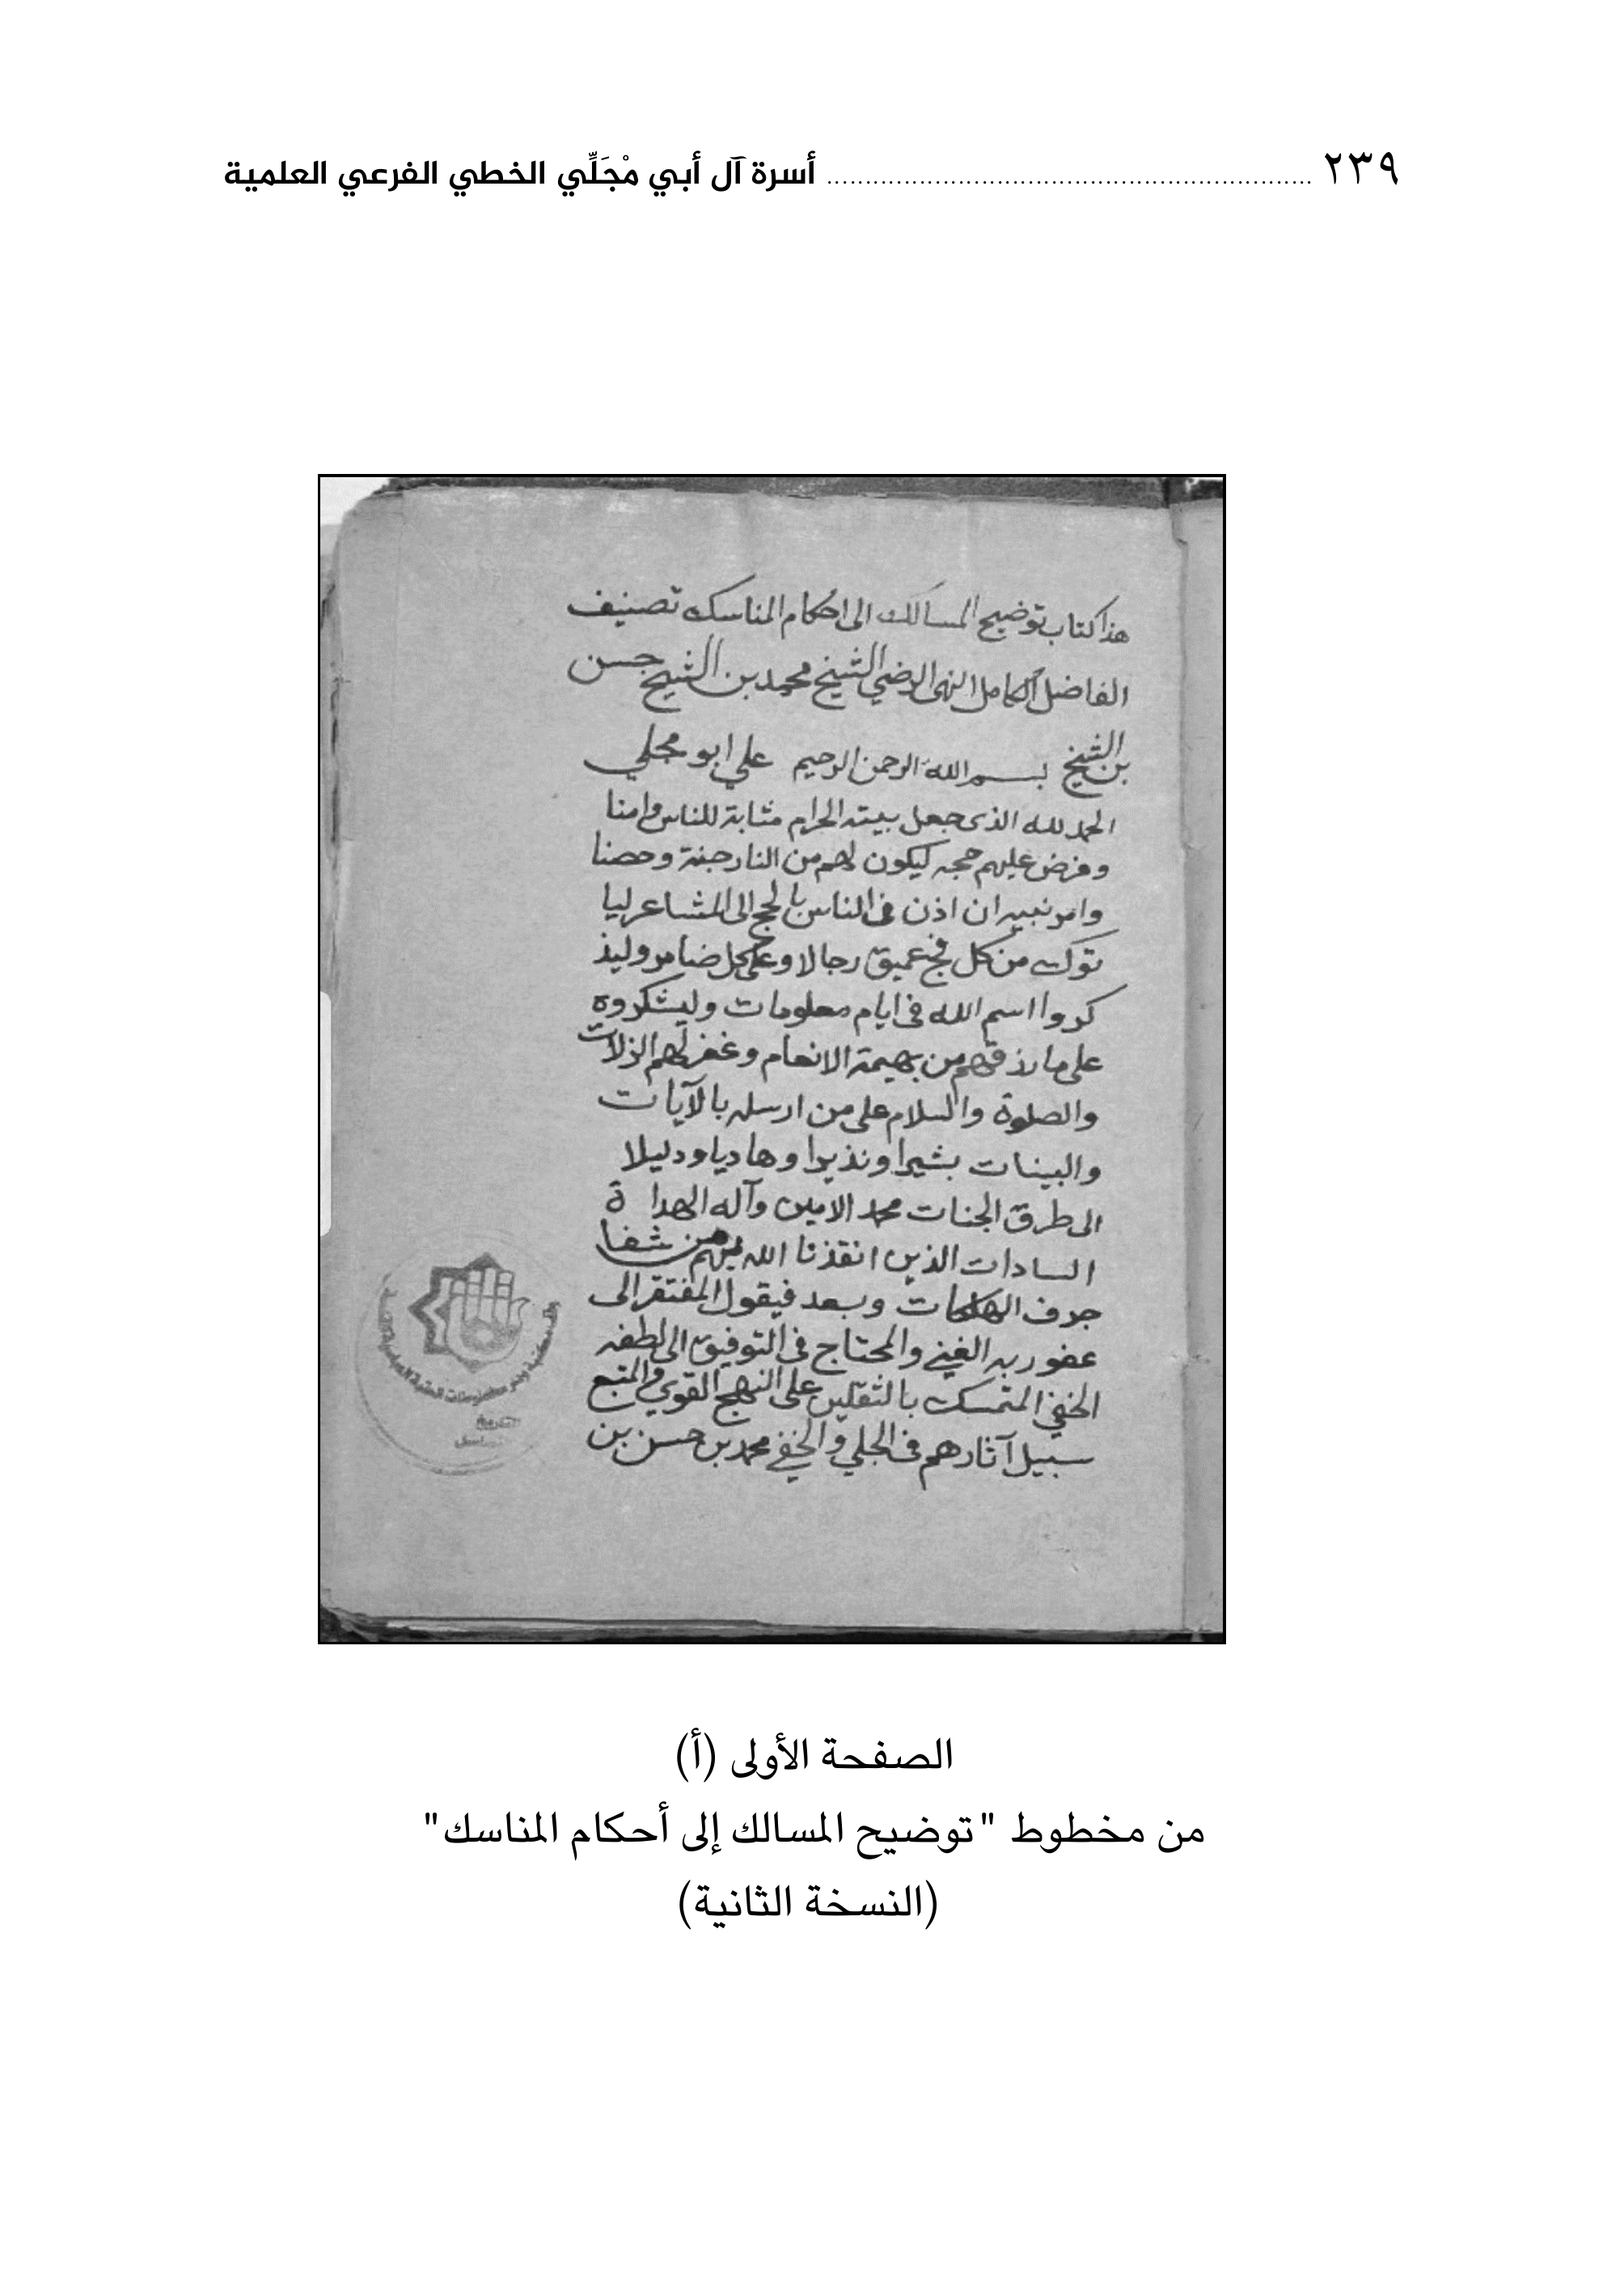 ٢٣٩ ........ أسرة آل أبي مْجَلِّي الخطي الفرعي العلمية
هذا كتاب توضيح المسالك الى احكام المناسك تصنيف
الفاضل الكامل الرضي الشيخ محمد بن الشيخ حسن
بن الشيخ بسم الله الرحمن الرحيم علي ابو مجلي
الحمد لله الذى جعل بيته الحرام مثابة للناس وامنا
وفرض عليهم حجه ليكون لهم من النار جنة وحصنا
وامر نبيه ان اذن فى الناس بالحج الى المشاعر ليا
توك من كل فج عميق رجالا وعلى كل ضامر وليذ
كروا اسم الله فى ايام معلومات وليشكروه
على ما رزقهم من بهيمة الانعام وغفر لهم الزلات
والصلوة والسلام على من ارسله بالآيات
والبينات بشيرا ونذيرا وهاديا ودليلا
الى طرق الجنات محمد الامين وآله الهداة
السادات الذين انقذنا الله بهم من شفا
جرف الهلكات وبعد فيقول المفتقر الى
عفو ربه الغني والمحتاج فى التوفيق الى لطفه
الخفي المتمسك بالثقلين على النهج القوي والمتبع
سبيل آثارهم فى الجلي والخفي محمد بن حسن بن
الصفحة الأولى (أ)
من مخطوط "توضيح المسالك إلى أحكام المناسك"
(النسخة الثانية)